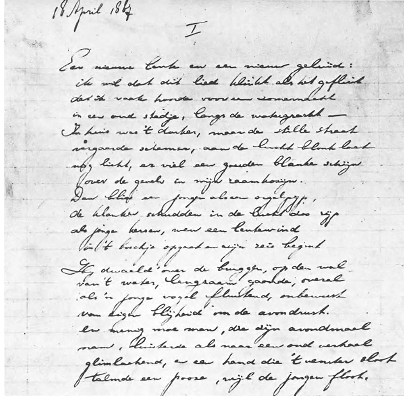 18 April
I
Een nieuwe lente en een nieuw geluid:
ik wil dat dit lied klinkt als het gefluit
dat ik vaak hoorde voor een zomernacht
in een oud stadje, langs de watergracht —
In huis was 't donker, maar de stille straat
vergaarde schemer, aan de lucht blonk laat
nog licht, er viel een gouden blanke schijn
over de gevels in mijn raamkozijn.
Dan blies een jongen als een orgelpijp,
de klanken schudden in de lucht zoo rijp
als jonge kersen, wen een lentewind
in 't boschje opgaat en zijn reis begint
Hij dwaald' over de bruggen, op den wal
van 't water, langzaam gaande, overal
als 'n jonge vogel fluitend, onbewust
van eigen blijheid om de avondrust.
en menig moe man, die zijn avondmaal
nam, luisterde als naar een oud verhaal
glimlachend, en een hand die 't venster sloot
talmde een pooze, wijl de jongen floot.